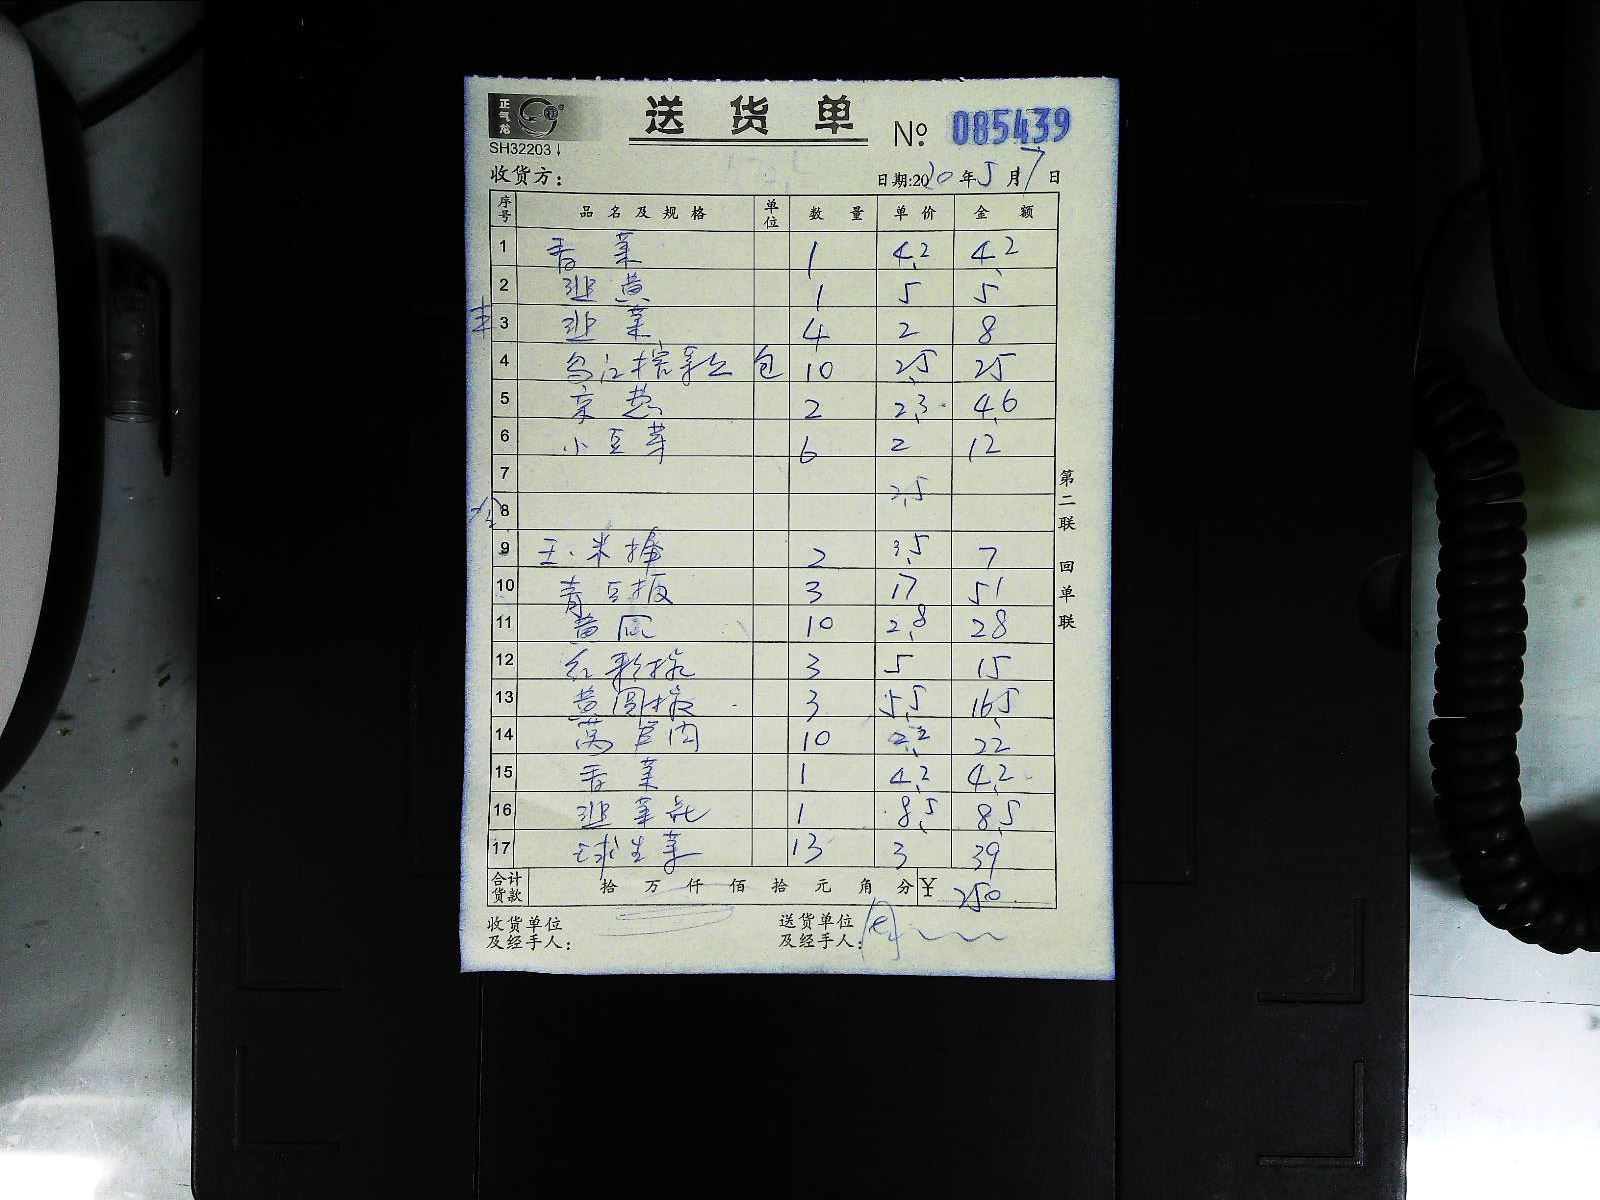 正气龙
送货单
№ 085439
SH32203
收货方： 日期:2020年5月7日
序号 品名及规格 单位 数量 单价 金额
1 香菜 1 4.2 4.2
2 韭黄 1 5 5
3 韭菜 4 2 8
4 乌江榨菜丝 包 10 2.5 25
5 京葱 2 2.3 4.6
6 小豆芽 6 2 12
7 2.5
8
9 玉米 2 3.5 7
10 青豆板 3 17 51
11 黄瓜 10 2.8 28
12 红彩椒 3 5 15
13 黄圆椒 3 5.5 16.5
14 莴苣肉 10 2.2 22
15 香菜 1 4.2 4.2
16 韭菜花 1 8.5 8.5
17 球生菜 13 3 39
合计货款 拾万仟佰拾元角分 ¥ 250
收货单位及经手人： 送货单位及经手人：
第二联 回单联